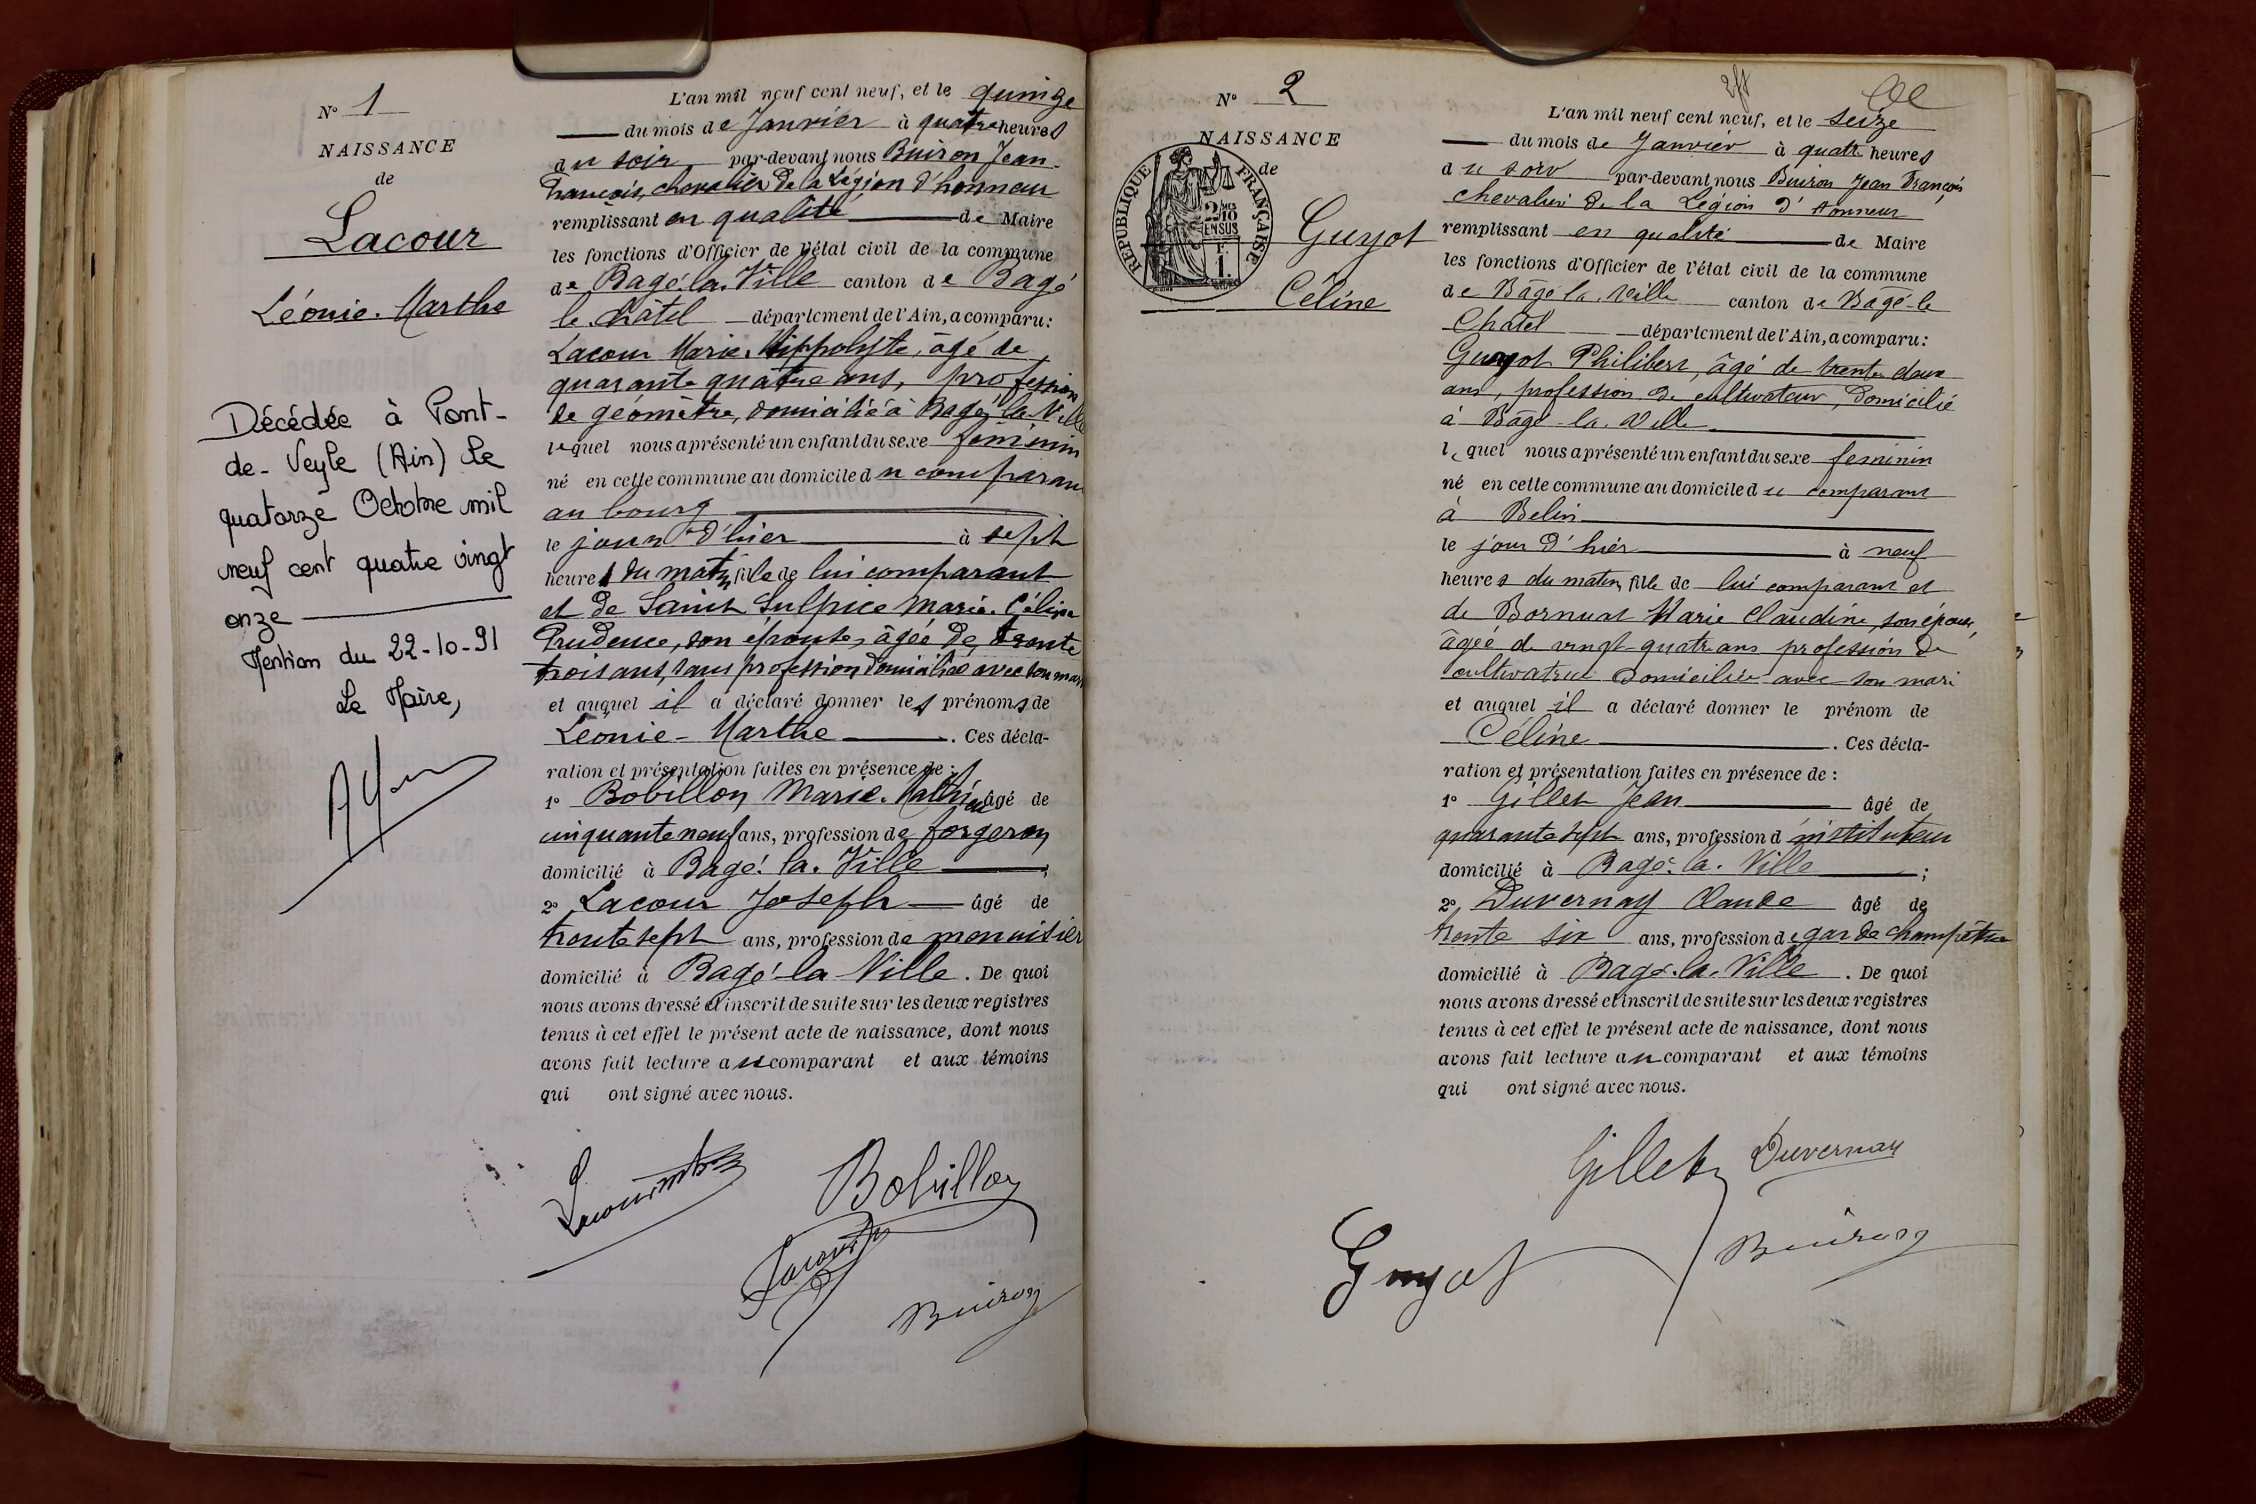 N° 1
NAISSANCE
de
Lacour
Léonie-Marthe
Décédée à Pont-
de-Veyle (Ain) le
quatorze Octobre mil
neuf cent quatre vingt
onze
Mention du 22-10-91
Le Maire,
L'an mil neuf cent neuf, et le quinze
du mois de Janvier à quatre heures
du soir, par-devant nous Buiron Jean-
François, chevalier de la Légion d'honneur
remplissant en qualité de Maire
les fonctions d'Officier de l'état civil de la commune
de Bagé-la-Ville canton de Bagé
le châtel département de l'Ain, a comparu :
Lacour Marie-Hippolyte, âgé de
quarante quatre ans, profession
de géomètre, domicilié à Bagé la-Ville
lequel nous a présenté un enfant du sexe féminin
né en cette commune au domicile du comparant
au bourg
le jour d'hier à sept
heures du matin, fille de lui comparant
et de Saint Sulpice Marie-Céline
Prudence, son épouse, âgée de trente
trois ans, sans profession domiciliée avec son mari
et auquel il a déclaré donner les prénoms de
Léonie-Marthe. Ces décla-
ration et présentation faites en présence de :
1° Bobillon Marie-Mathieu âgé de
cinquante neuf ans, profession de forgeron
domicilié à Bagé-la-Ville ;
2° Lacour Joseph âgé de
trente sept ans, profession de menuisier
domicilié à Bagé-la-Ville. De quoi
nous avons dressé et inscrit de suite sur les deux registres
tenus à cet effet le présent acte de naissance, dont nous
avons fait lecture au comparant et aux témoins
qui ont signé avec nous.
Bobillon
Lacour
Buiron
N° 2
NAISSANCE
de
RÉPUBLIQUE FRANÇAISE
2/10
EN SUS
F.
1.
Guyot
Céline
L'an mil neuf cent neuf, et le seize
du mois de Janvier à quatre heures
du soir par-devant nous Buiron Jean François
chevalier de la Légion d'honneur
remplissant en qualité de Maire
les fonctions d'Officier de l'état civil de la commune
de Bâgé la Ville canton de Bâgé-le
Chatel département de l'Ain, a comparu :
Guyot Philibert, âgé de trente deux
ans, profession de cultivateur, domicilié
à Bâgé-la-Ville
lequel nous a présenté un enfant du sexe féminin
né en cette commune au domicile du comparant
à Belin
le jour d'hier à neuf
heures du matin, fille de lui comparant et
de Bornuat Marie Claudine, son épouse,
âgée de vingt-quatre ans profession de
cultivatrice domiciliée avec son mari
et auquel il a déclaré donner le prénom de
Céline. Ces décla-
ration et présentation faites en présence de :
1° Gillet Jean âgé de
quarante sept ans, profession d'instituteur
domicilié à Bagé-la-Ville ;
2° Duvernay Claude âgé de
trente six ans, profession de garde champêtre
domicilié à Bagé-la-Ville. De quoi
nous avons dressé et inscrit de suite sur les deux registres
tenus à cet effet le présent acte de naissance, dont nous
avons fait lecture au comparant et aux témoins
qui ont signé avec nous.
Gillet Duvernay
Guyot Buiron